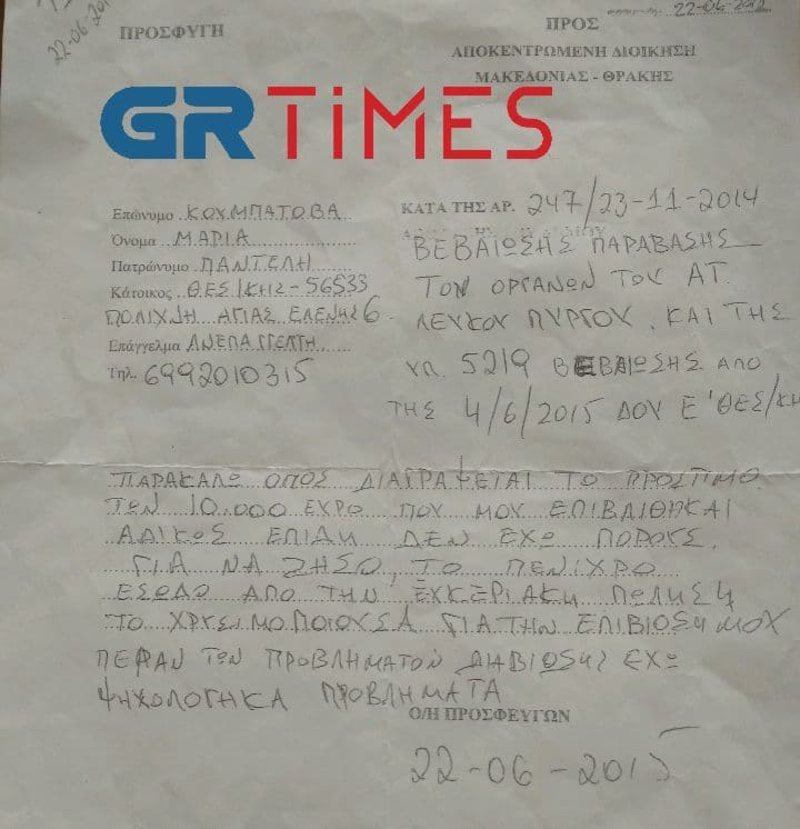 22-06-201
22-06-2012
ΠΡΟΣΦΥΓΗ
ΠΡΟΣ
ΑΠΟΚΕΝΤΡΩΜΕΝΗ ΔΙΟΙΚΗΣΗ
ΜΑΚΕΔΟΝΙΑΣ - ΘΡΑΚΗΣ
GRTiMES
Επώνυμο ΚΟΥΜΠΑΤΟΒΑ
Όνομα ΜΑΡΙΑ
Πατρώνυμο ΠΑΝΤΕΛΗ
Κάτοικος ΘΕΣ/ΚΗΣ-56533
ΠΟΛΙΧΝΗ ΑΓΙΑΣ ΕΛΕΝΗΣ 6
Επάγγελμα ΑΝΕΠΑΓΓΕΛΤΗ
Τηλ. 6992010315
ΚΑΤΑ ΤΗΣ ΑΡ. 247/23-11-2014
ΒΕΒΑΙΩΣΗΣ ΠΑΡΑΒΑΣΗΣ
ΤΩΝ ΟΡΓΑΝΩΝ ΤΟΥ ΑΤ.
ΛΕΥΚΟΥ ΠΥΡΓΟΥ, ΚΑΙ ΤΗΣ
ΥΠ. 5219 ΒΕΒΑΙΩΣΗΣ ΑΠΟ
ΤΗΣ 4/6/2015 ΔΟΥ Ε' ΘΕΣ/ΚΗ
ΠΑΡΑΚΑΛΩ ΟΠΟΣ ΔΙΑΓΡΑΨΕΤΑΙ ΤΟ ΠΡΟΣΤΙΜΟ
ΤΩΝ 10.000 ΕΥΡΟ ΠΟΥ ΜΟΥ ΕΠΙΒΑΙΘΗΚΑΙ
ΑΔΙΚΟΣ ΕΠΙΔΗ ΔΕΝ ΕΧΩ ΠΟΡΟΥΣ
ΓΙΑ ΝΑ ΖΗΣΟ, ΤΟ ΠΕΝΙΧΡΟ
ΕΣΩΔΟ ΑΠΟ ΤΗΝ ΕΥΚΕΡΙΑΚΗ ΠΩΛΗΣΗ
ΤΟ ΧΡΥΣΙΜΟΠΟΙΟΥΣΑ ΓΙΑ ΤΗΝ ΕΠΙΒΙΟΣΗ ΜΟΥ
ΠΕΡΑΝ ΤΩΝ ΠΡΟΒΛΗΜΑΤΟΝ ΔΙΑΒΙΩΣΗΣ ΕΧΩ
ΨΗΧΟΛΟΓΗΚΑ ΠΡΟΒΛΗΜΑΤΑ
Ο/Η ΠΡΟΣΦΕΥΓΩΝ
22-06-2015